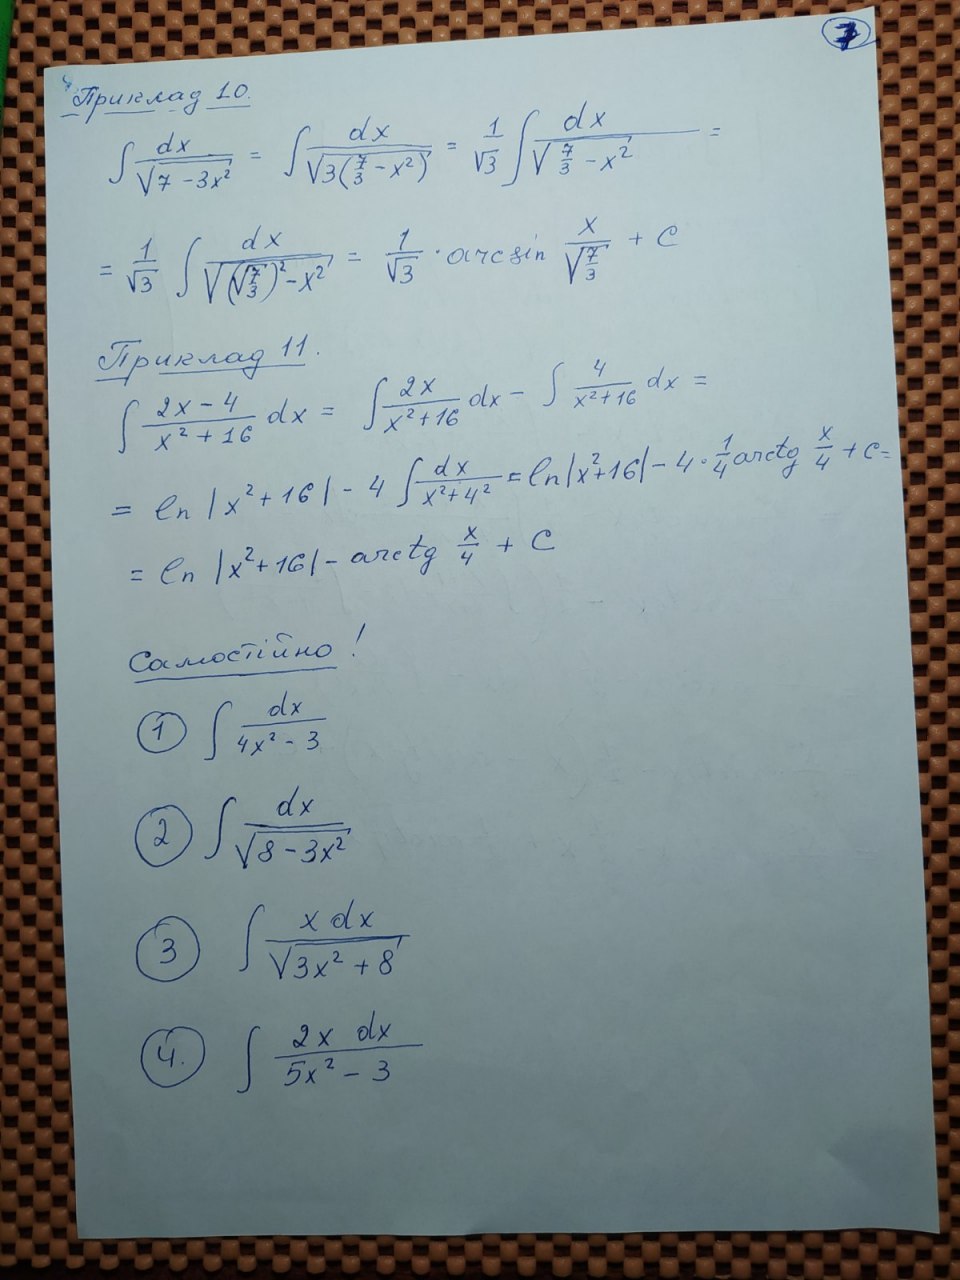 7
Приклад 10.
∫ dx/√(7 - 3x²) = ∫ dx/√(3(7/3 - x²)) = 1/√3 ∫ dx/√(7/3 - x²) =
= 1/√3 ∫ dx/√((√(7/3))² - x²) = 1/√3 · arcsin x/√(7/3) + C
Приклад 11.
∫ (2x - 4)/(x² + 16) dx = ∫ 2x/(x² + 16) dx - ∫ 4/(x² + 16) dx =
= ln |x² + 16| - 4 ∫ dx/(x² + 4²) = ln |x² + 16| - 4 · 1/4 arctg x/4 + C =
= ln |x² + 16| - arctg x/4 + C
Самостійно!
1 ∫ dx/(4x² - 3)
2 ∫ dx/√(8 - 3x²)
3 ∫ x dx/√(3x² + 8)
4. ∫ 2x dx/(5x² - 3)